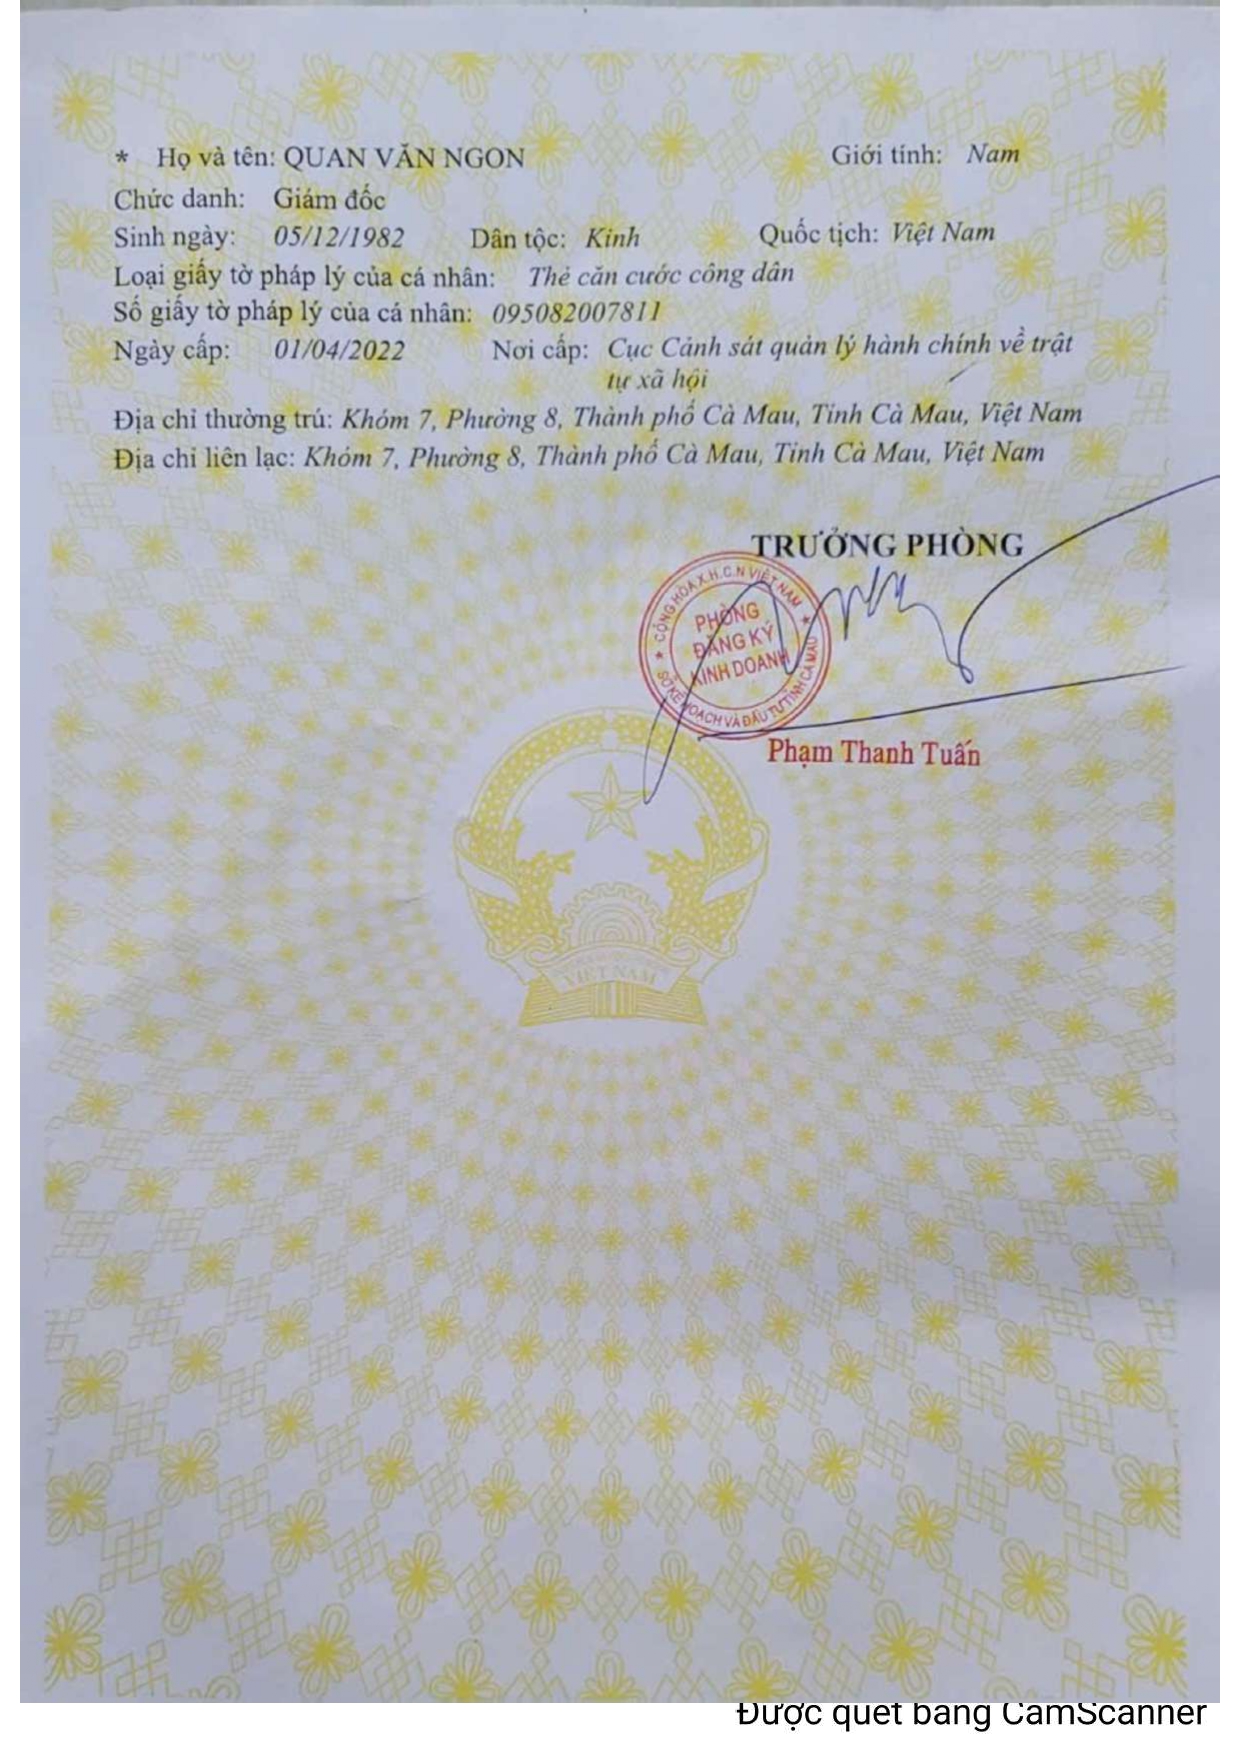 * Họ và tên: QUAN VĂN NGON Giới tính: Nam
Chức danh: Giám đốc
Sinh ngày: 05/12/1982 Dân tộc: Kinh Quốc tịch: Việt Nam
Loại giấy tờ pháp lý của cá nhân: Thẻ căn cước công dân
Số giấy tờ pháp lý của cá nhân: 095082007811
Ngày cấp: 01/04/2022 Nơi cấp: Cục Cảnh sát quản lý hành chính về trật
tự xã hội
Địa chỉ thường trú: Khóm 7, Phường 8, Thành phố Cà Mau, Tỉnh Cà Mau, Việt Nam
Địa chỉ liên lạc: Khóm 7, Phường 8, Thành phố Cà Mau, Tỉnh Cà Mau, Việt Nam
TRƯỞNG PHÒNG
CỘNG HÒA X.H.C.N VIỆT NAM
PHÒNG
ĐĂNG KÝ
KINH DOANH
SỞ KẾ HOẠCH VÀ ĐẦU TƯ TỈNH CÀ MAU
Phạm Thanh Tuấn
VIỆT NAM
Được quét bằng CamScanner